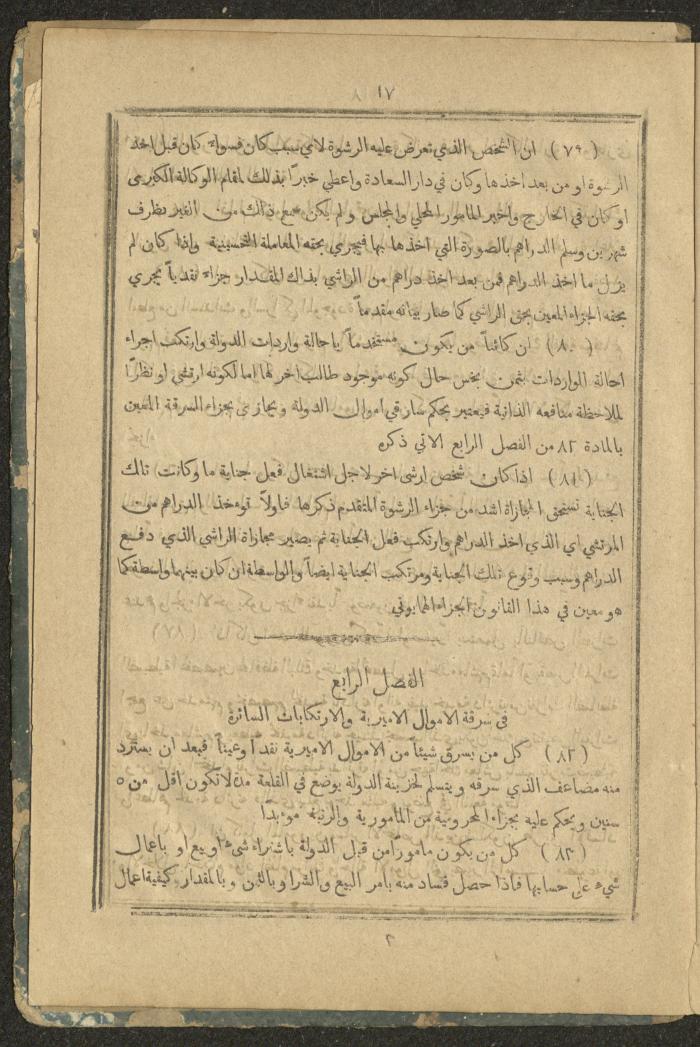 ١٧
(٧٩) ان الشخص الذي تعرض عليه الرشوة لاي سبب كان فسواء كان قبل اخذ
الرشوة او من بعد اخذها وكان في دار السعادة واعطي خبرًا بذلك لمقام الوكالة الكبرى
او كان في الخارج واخبر المامور المحلي والمجلس ولم يكن سمع ذلك من الغير بظرف
شهرين وسلم الدراهم بالصورة التي اخذها بها فيجري بحقه المعاملة التحسينية واذا كان لم
يزل ما اخذ الدراهم فمن بعد اخذ دراهم من الراشي بذاك المقدار جزاء نقدياً يجري
بحقه الجزاء المعين بحق الراشي كما صار بيانه مقدماً
(٨٠) ان كائناً من يكون مستقدماً باحالة واردات الدولة وارتكب اجراء
احالة الواردات بثمن بخس حال كونه موجود طالب اخر لها اما لكونه ارتشي او نظرًا
لملاحظة منافعه الذاتية فيعتبر بحكم سارقي اموال الدولة ويجازي بجزاء السرقة المعين
بالمادة ٨٢ من الفصل الرابع الاتي ذكره
(٨١) اذا كان شخص ارشى اخر لاجل اشتغال فعل جناية ما وكانت تلك
الجناية تستحق المجازاة اشد من جزاء الرشوة المتقدم ذكرها فاولاً توءخذ الدراهم من
المرتشي اي الذي اخذ الدراهم وارتكب فعل الجناية ثم يصير مجازاة الراشي الذي دفع
الدراهم وسبب وقوع تلك الجناية ومرتكب الجناية ايضاً والواسطة ان كان بينهما واسطة كما
هو معين في هذا القانون الجزاء الهمايوني
الفصل الرابع
في سرقة الاموال الاميرية والارتكابات السائرة
(٨٢) كل من يسرق شيئاً من الاموال الاميرية نقداً وعيناً فبعد ان يسترد
منه مضاعف الذي سرقه ويتسلم لخزينة الدولة يوضع في القلعة مدة لا تكون اقل من ٥
سنين ويحكم عليه بجزاء المحرومية من المامورية والرتبة موءبدًا
(٨٣) كل من يكون مامورًا من قبل الدولة باشتراء شيء او بيع او باعمال
شيء على حسابها فاذا حصل فساد منه بامر البيع والشرا وبالثمن وبالمقدار وكيفية اعمال